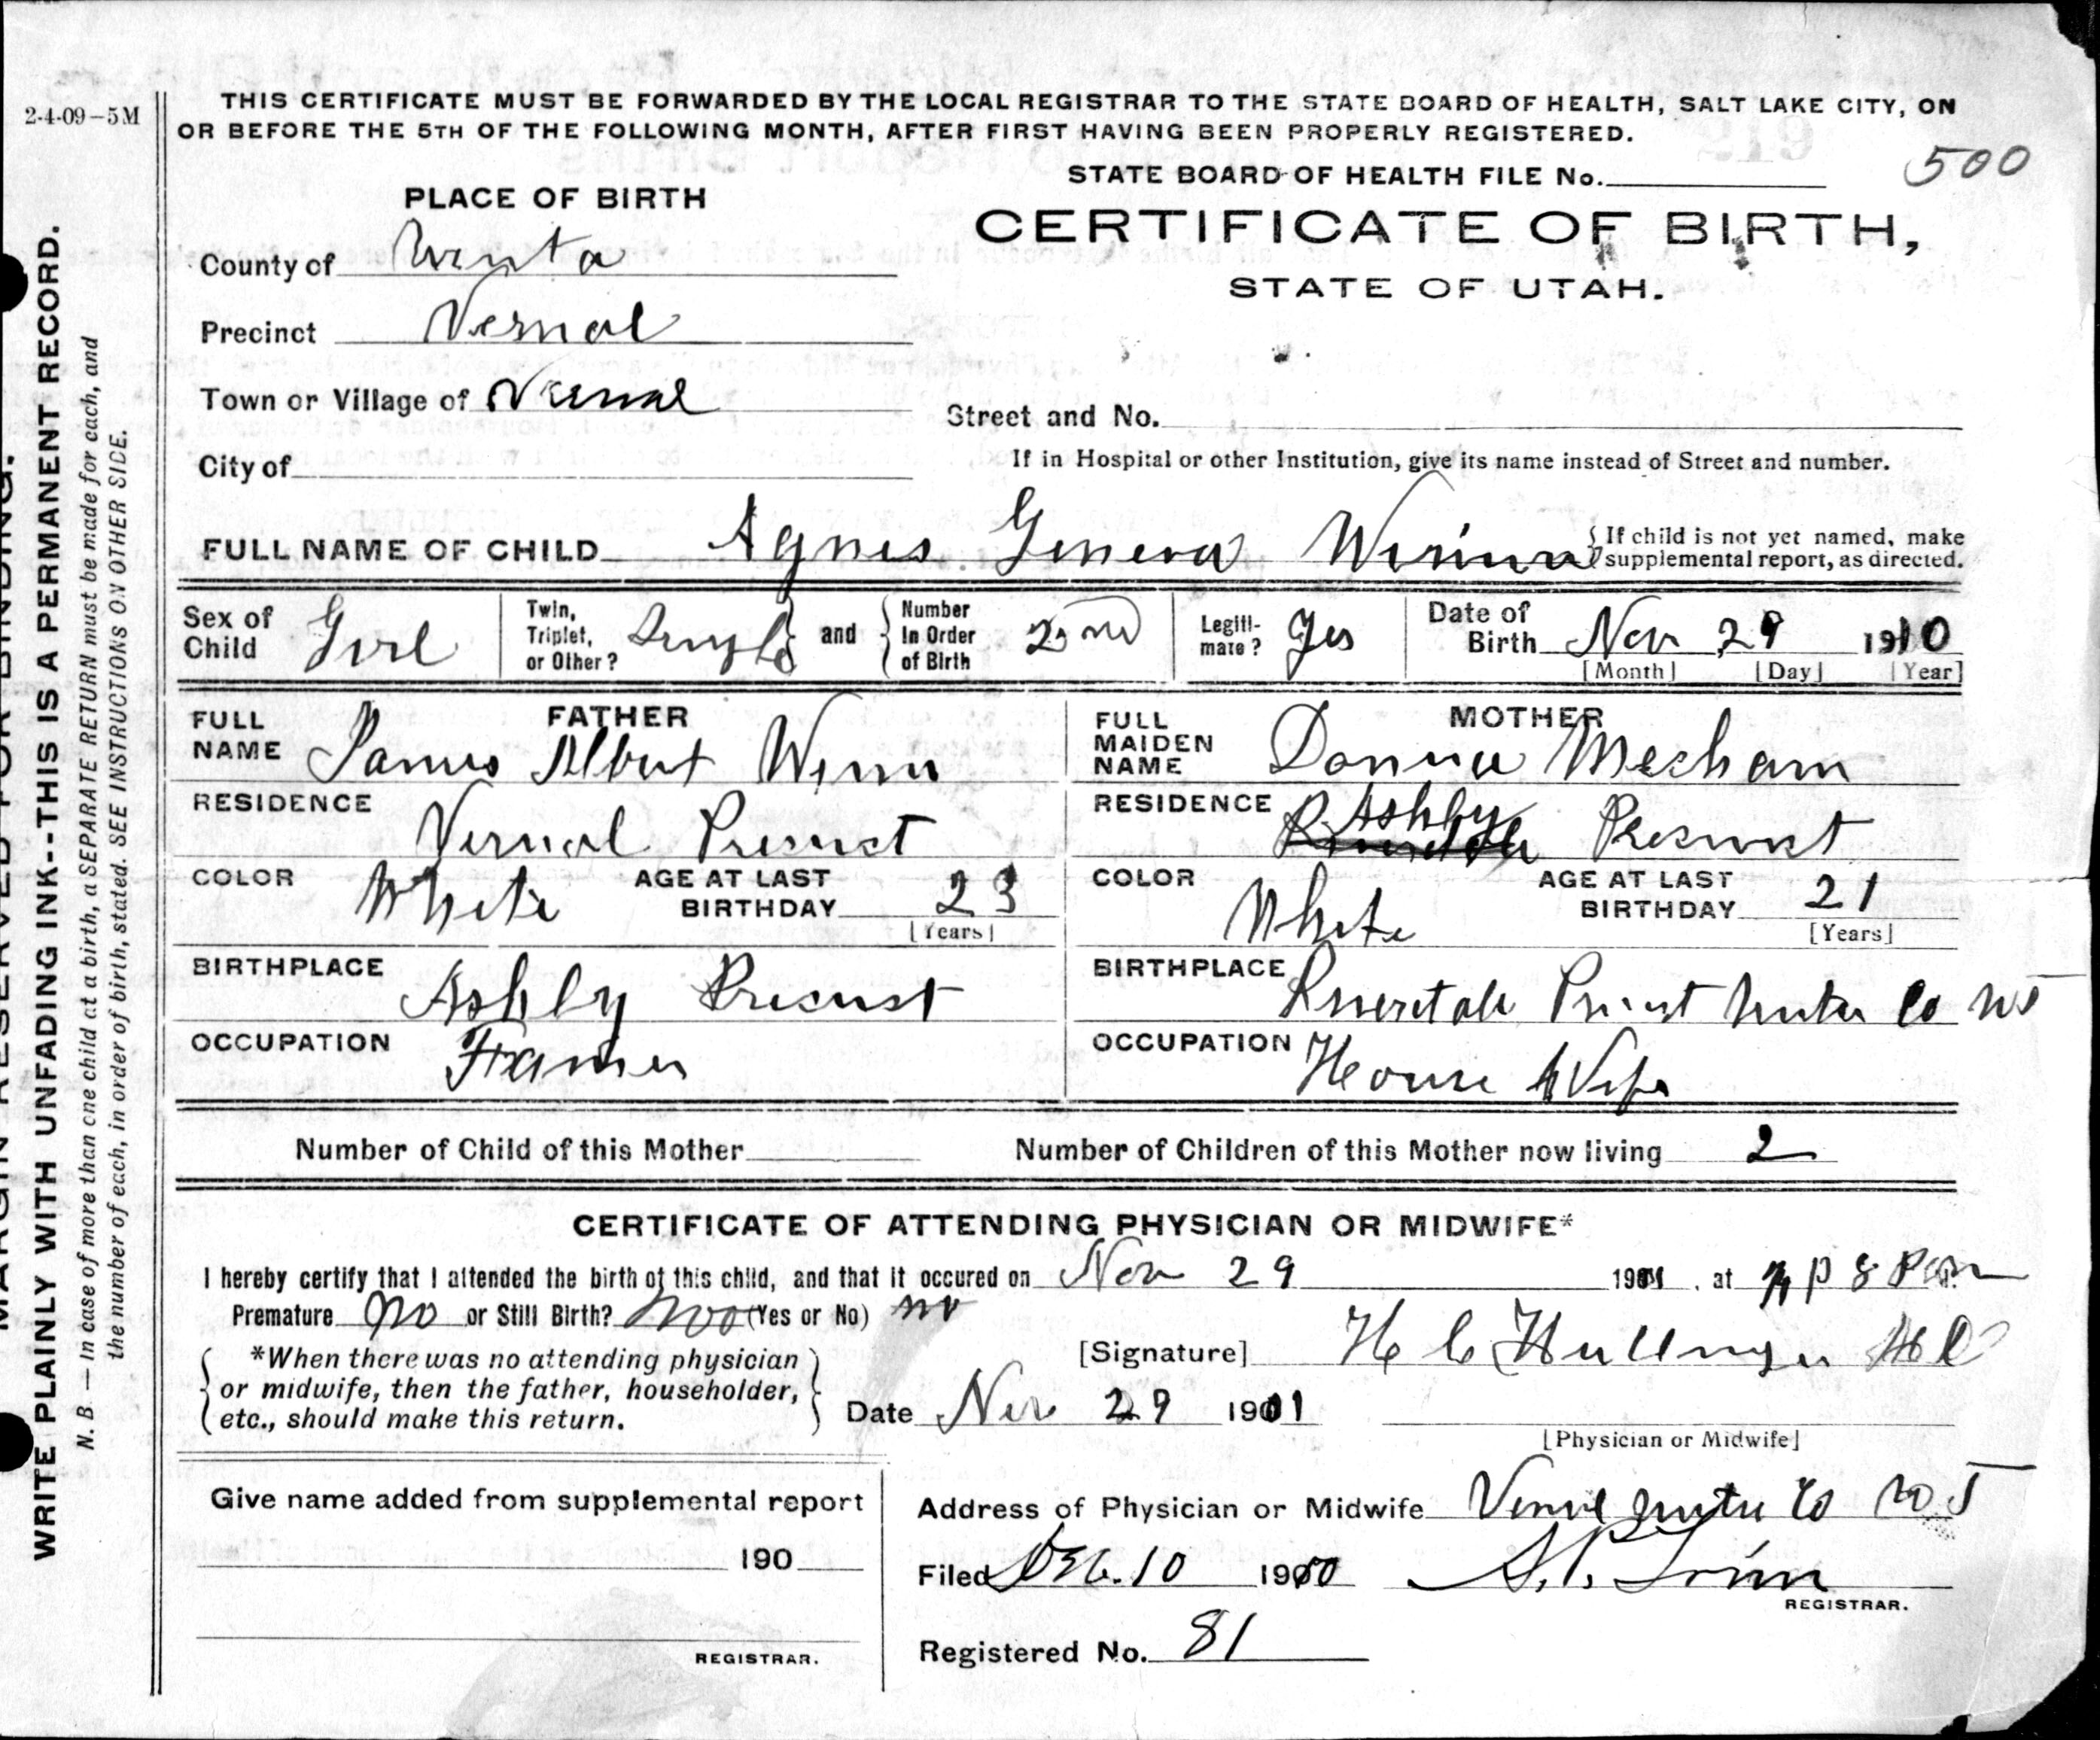 2-4-09-5M
THIS CERTIFICATE MUST BE FORWARDED BY THE LOCAL REGISTRAR TO THE STATE BOARD OF HEALTH, SALT LAKE CITY, ON
OR BEFORE THE 5TH OF THE FOLLOWING MONTH, AFTER FIRST HAVING BEEN PROPERLY REGISTERED.
STATE BOARD OF HEALTH FILE No. 500
PLACE OF BIRTH
CERTIFICATE OF BIRTH,
STATE OF UTAH.
County of
Precinct Vernal
Town or Village of Vernal
Street and No.
City of
If in Hospital or other Institution, give its name instead of Street and number.
FULL NAME OF CHILD Agnes Geneva
If child is not yet named, make
supplemental report, as directed.
Sex of Child Girl
Twin, Triplet, or Other? and
Number In Order of Birth 2nd
Legiti-mate? Yes
Date of Birth Nov 29 1910
[Month] [Day] [Year]
FATHER
FULL NAME James Albert Winn
RESIDENCE Vernal Precinct
COLOR White AGE AT LAST BIRTHDAY 23
[Years]
BIRTHPLACE Ashly Precinct
OCCUPATION
MOTHER
FULL MAIDEN NAME Donna Mecham
RESIDENCE Ashly Precinct
COLOR White AGE AT LAST BIRTHDAY 21
[Years]
BIRTHPLACE Co
OCCUPATION House Wife
Number of Child of this Mother
Number of Children of this Mother now living 2
CERTIFICATE OF ATTENDING PHYSICIAN OR MIDWIFE*
I hereby certify that I attended the birth of this child, and that it occured on Nov 29 , at 8 Pm
Premature no or Still Birth? (Yes or No) no
*When there was no attending physician
or midwife, then the father, householder,
etc., should make this return.
[Signature] H C Hullinger MD
Date Nov 29
[Physician or Midwife]
Give name added from supplemental report
190
REGISTRAR.
Address of Physician or Midwife Co
Filed Dec. 10 1910
REGISTRAR.
Registered No. 81
MARGIN RESERVED FOR BINDING.
WRITE PLAINLY WITH UNFADING INK--THIS IS A PERMANENT RECORD.
N. B.—In case of more than one child at a birth, a SEPARATE RETURN must be made for each, and
the number of each, in order of birth, stated. SEE INSTRUCTIONS ON OTHER SIDE.